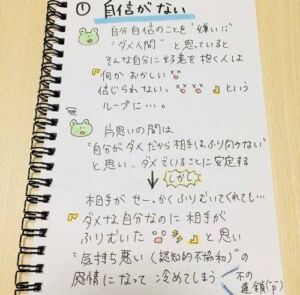 ① 自信がない
自分自信のことを"嫌い!!"
"ダメ人間"と思っていると
そんな自分に好意を抱く人は
『何かおかしい
信じられない。』という
ループに…。
片思いの間は
"自分がダメだから相手はふり向かない"
と思い、ダメでいることに安定する
しかし
相手がせーかくふりむいてくれても…
『ダメな自分なのに相手が
ふりむいた』と思い
"気持ち悪い(認知的不協和)"の
感情になって冷めてしまう
不の
連鎖